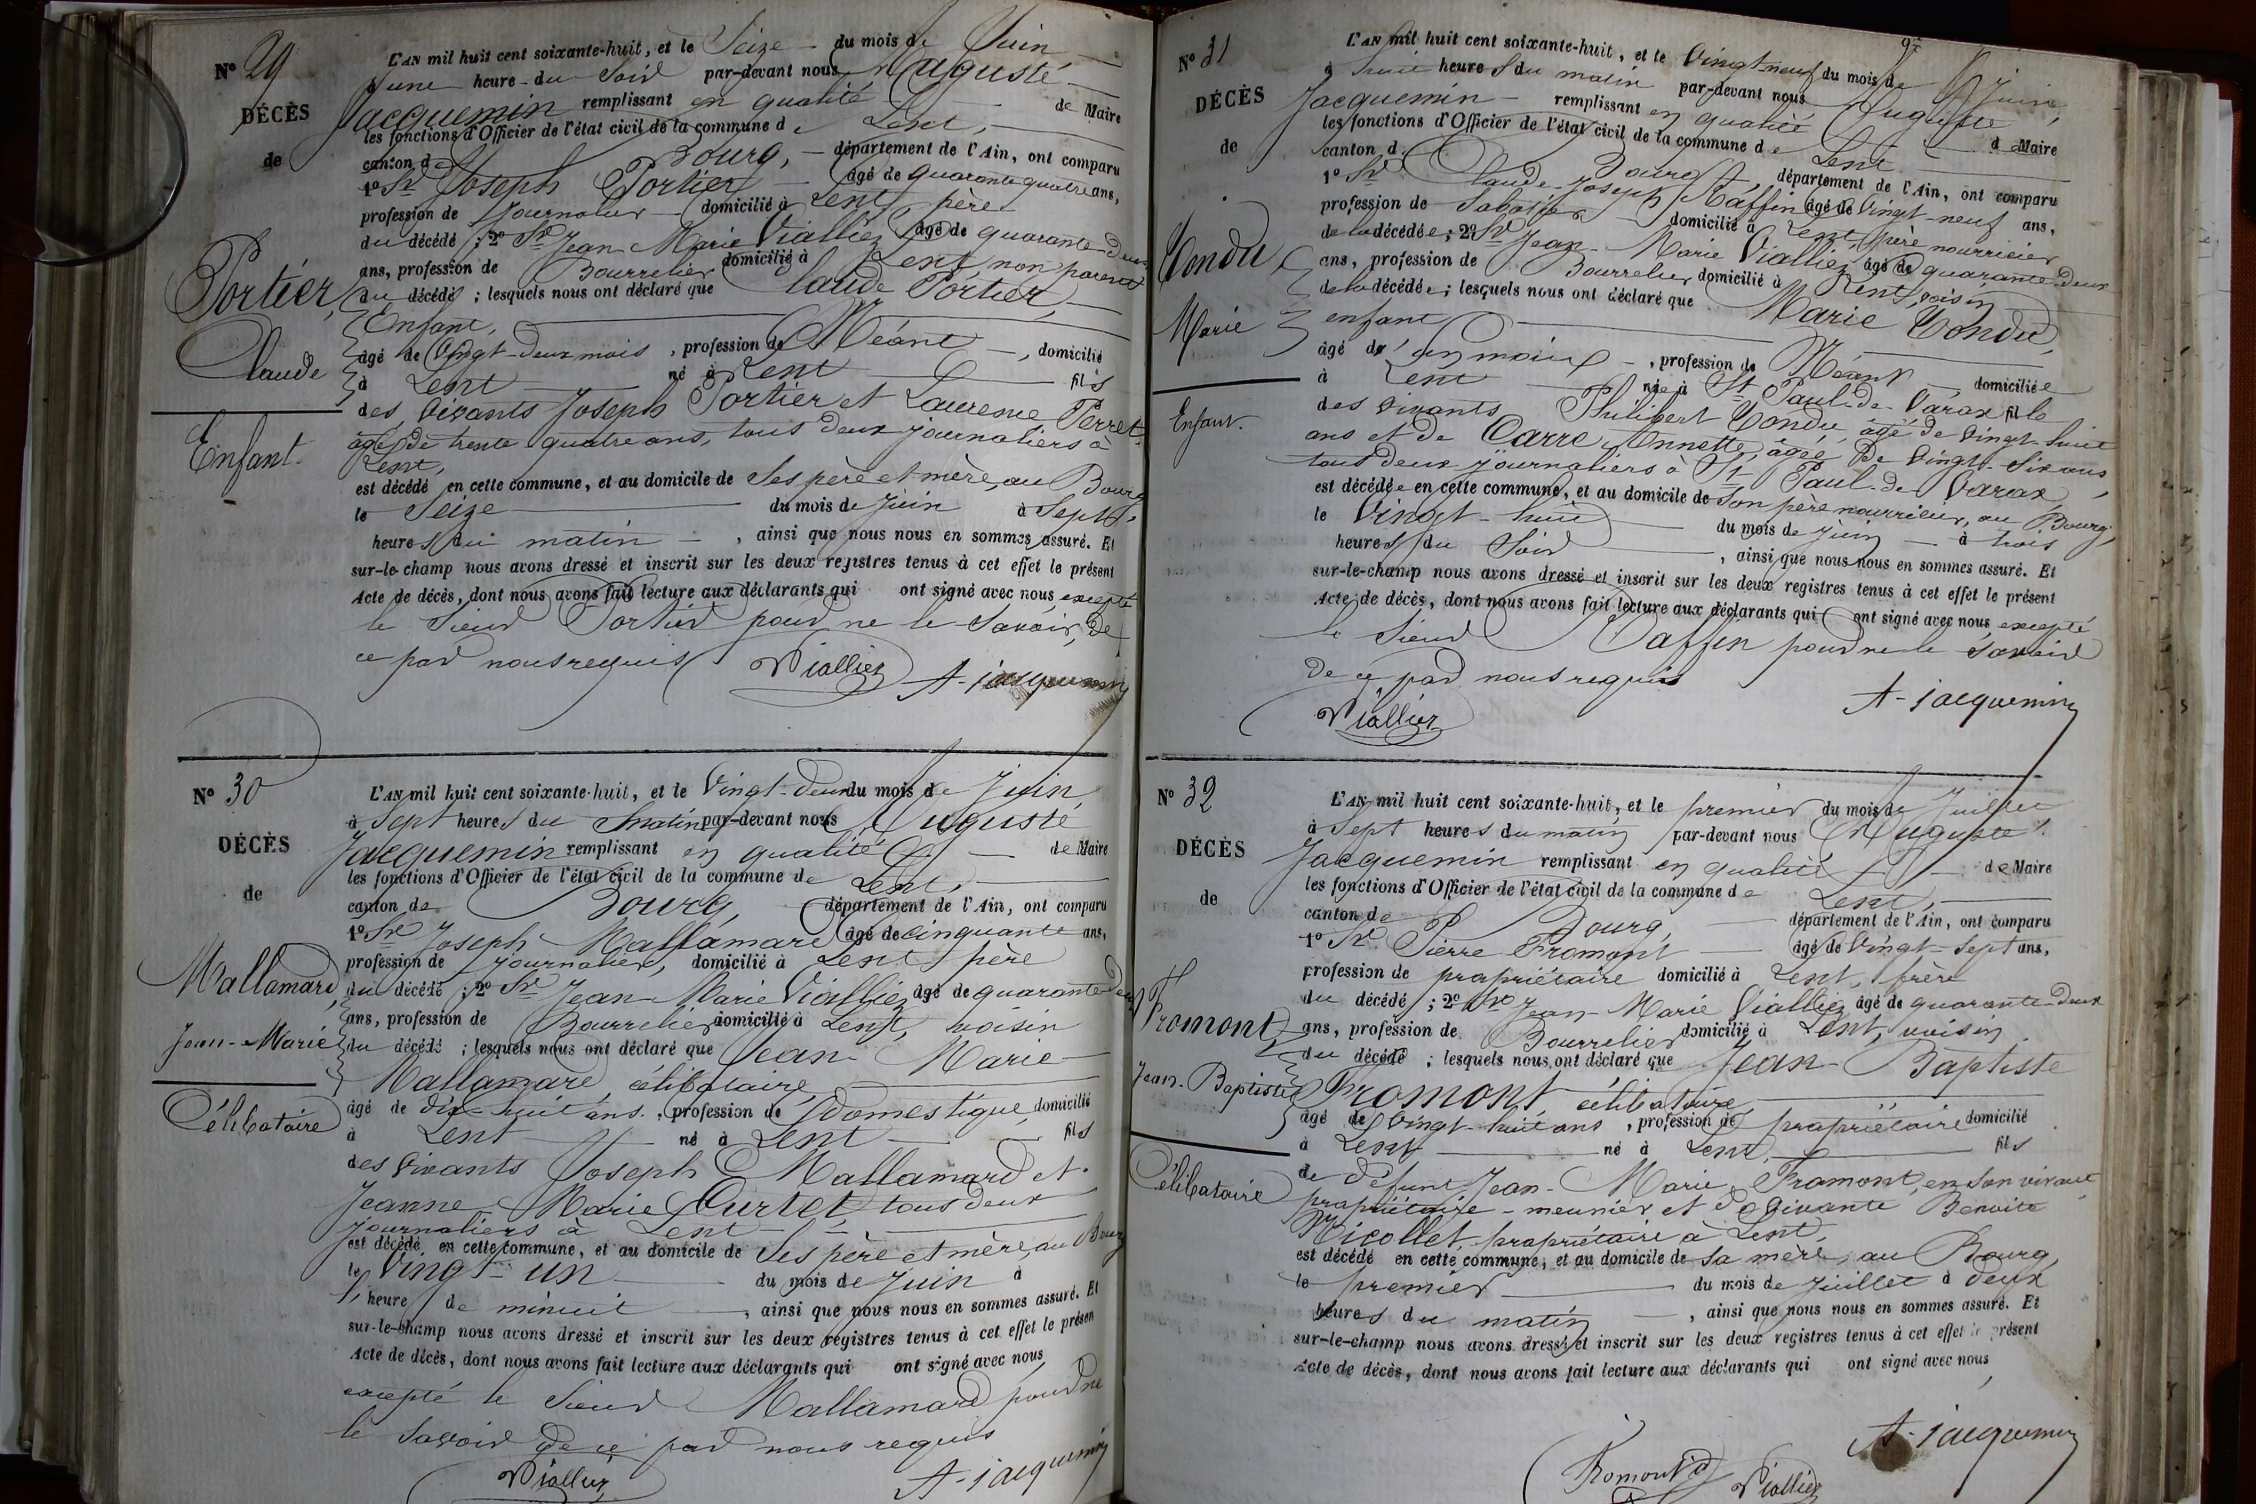 N° 29
DÉCÈS
de
Portier,
Claude
Enfant.
L'AN mil huit cent soixante-huit, et le Seize du mois de Juin
à une heure du Soir par-devant nous Auguste
Jacquemin remplissant en qualité de Maire
les fonctions d'Officier de l'état civil de la commune de Lent,
canton de Bourg, département de l'Ain, ont comparu
1° Sr Joseph Portier âgé de quarante quatre ans,
profession de Journalier domicilié à Lent, père
du décédé ; 2° Sr Jean-Marie Viallier âgé de quarante-deux
ans, profession de Bourrelier domicilié à Lent, non parent
du décédé ; lesquels nous ont déclaré que Claude Portier,
Enfant,
âgé de Vingt-deux mois, profession de Néant, domicilié
à Lent né à Lent fils
des vivants Joseph Portier et Laurence Perret
âgée de trente quatre ans, tous deux journaliers à
Lent,
est décédé en cette commune, et au domicile de Ses père et mère, au Bourg
le Seize du mois de Juin à Sept
heures du matin, ainsi que nous nous en sommes assuré. Et
sur-le-champ nous avons dressé et inscrit sur les deux registres tenus à cet effet le présent
Acte de décès, dont nous avons fait lecture aux déclarants qui ont signé avec nous, excepté
le Sieur Portier pour ne le Savoir, de
ce par nous requis
Viallier A-jacquemin
N° 30
DÉCÈS
de
Mallamard,
Jean-Marie
Célibataire
L'AN mil huit cent soixante-huit, et le Vingt-deux du mois de Juin
à Sept heures du matin par-devant nous Auguste
Jacquemin remplissant en qualité de Maire
les fonctions d'Officier de l'état civil de la commune de Lent,
canton de Bourg, département de l'Ain, ont comparu
1° Sr Joseph Mallamard âgé de cinquante ans,
profession de Journalier, domicilié à Lent, père
du décédé ; 2° Sr Jean-Marie Viallier âgé de quarante-deux
ans, profession de Bourrelier domicilié à Lent, voisin
du décédé ; lesquels nous ont déclaré que Jean-Marie
Mallamard, célibataire
âgé de dix-huit ans, profession de Domestique, domicilié
à Lent né à Lent fils
des vivants Joseph Mallamard et
Jeanne-Marie Curtet, tous deux
Journaliers à Lent
est décédé en cette commune, et au domicile de Ses père et mère, au Bourg
le Vingt-un du mois de Juin à
l'heure de minuit, ainsi que nous nous en sommes assuré. Et
sur-le-champ nous avons dressé et inscrit sur les deux registres tenus à cet effet le présen
Acte de décès, dont nous avons fait lecture aux déclarants qui ont signé avec nous,
excepté le Sieur Mallamard pour ne
le Savoir de ce par nous requis
Viallier A-jacquemin
N° 31
DÉCÈS
de
Condu
Marie
Enfant.
L'AN mil huit cent soixante-huit, et le Vingt-neuf du mois de Juin,
à huit heures du matin par-devant nous Auguste
Jacquemin remplissant en qualité de Maire
les fonctions d'Officier de l'état civil de la commune de Lent
canton de Bourg, département de l'Ain, ont comparu
1° Sr Claude-Joseph Raffin âgé de Vingt-neuf ans,
profession de Sabotier domicilié à Lent, père nourricier
de la décédée ; 2° Sr Jean-Marie Viallier âgé de quarante-deux
ans, profession de Bourrelier domicilié à Lent, voisin
de la décédée ; lesquels nous ont déclaré que Marie Condu,
enfant
âgé d'un mois, profession de Néant domiciliée
à Lent née à St Paul-de-Varax fille
des vivants Philibert Condu, âgé de Vingt-huit
ans et de Carre Annette, âgée de Vingt-Six ans,
tous deux journaliers à St Paul-de-Varax,
est décédée en cette commune, et au domicile de Son père nourricier, au Bourg,
le Vingt-huit du mois de Juin à trois
heures du Soir, ainsi que nous nous en sommes assuré. Et
sur-le-champ nous avons dressé et inscrit sur les deux registres tenus à cet effet le présent
Acte de décès, dont nous avons fait lecture aux déclarants qui ont signé avec nous excepté
le Sieur Raffin pour ne le Savoir
de ce par nous requis
Viallier A-jacquemin
N° 32
DÉCÈS
de
Fromont,
Jean-Baptiste
Célibataire
L'AN mil huit cent soixante-huit, et le premier du mois de Juillet
à Sept heures du matin par-devant nous Auguste
Jacquemin remplissant en qualité de Maire
les fonctions d'Officier de l'état civil de la commune de Lent,
canton de Bourg, département de l'Ain, ont comparu
1° Sr Pierre Fromont âgé de Vingt-Sept ans,
profession de propriétaire domicilié à Lent, frère
du décédé ; 2° Sr Jean-Marie Viallier âgé de quarante-deux
ans, profession de Bourrelier domicilié à Lent, voisin
du décédé ; lesquels nous ont déclaré que Jean-Baptiste
Fromont célibataire,
âgé de Vingt-huit ans, profession de propriétaire domicilié
à Lent né à Lent, fils
de défunt Jean-Marie Fromont, en son vivant
propriétaire-meunier et de vivante Benoite
Nicollet, propriétaire à Lent,
est décédé en cette commune, et au domicile de Sa mère, au Bourg,
le premier du mois de Juillet à deux
heures du matin, ainsi que nous nous en sommes assuré. Et
sur-le-champ nous avons dressé et inscrit sur les deux registres tenus à cet effet le présent
Acte de décès, dont nous avons fait lecture aux déclarants qui ont signé avec nous,
Fromont Viallier A-jacquemin